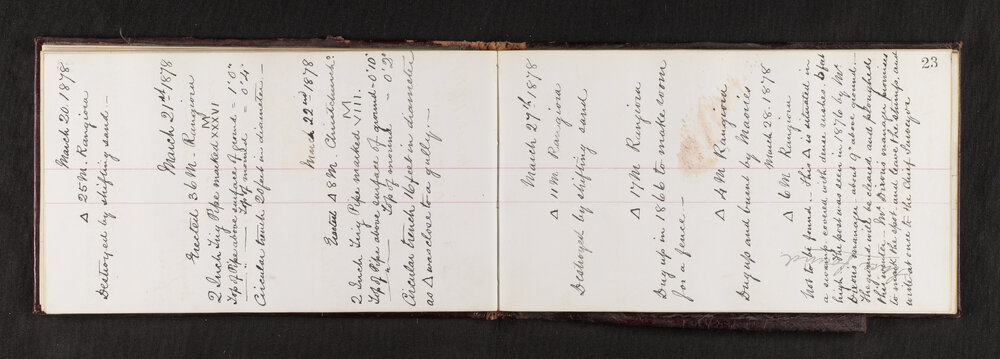 March 20. 1878
Δ 25 M. Rangiora
Destroyed by shifting sand.—
March 21st 1878
Erected 36 M. Rangiora
2 Inch Iron Pipe marked M XXXVI
Top of Pipe above surface of ground = 1' 0"
" " Top of mound = 0' 4"
Circular trench 20 feet in diameter.—
March 22nd 1878
Erected Δ 8 M. Christchurch.
2 Inch Iron Pipe marked M VIII.
Top of Pipe above surface of ground = 0' 10"
" " Top of mound = 0' 2"
Circular trench 16 feet in diameter
as Δ was close to a gully.—
23
March 27th 1878
Δ 11 M. Rangiora
Destroyed by shifting sand
Δ 17 M Rangiora
Dug up in 1866 to make room
for a fence —
Δ 4 M Rangiora
Dug up and burnt by Maories
March 28. 1878
Δ 6 M Rangiora
Not to be found.— This Δ is situated in
a swamp covered with dense rushes 6 feet
high. The post was seen in 1876 by Mr
manager about 9" above ground.—
The ground will be cleared and ploughed
this winter.— Mr manager promises
to mark the spot and leave the stump, and
write at once to the Chief Surveyor